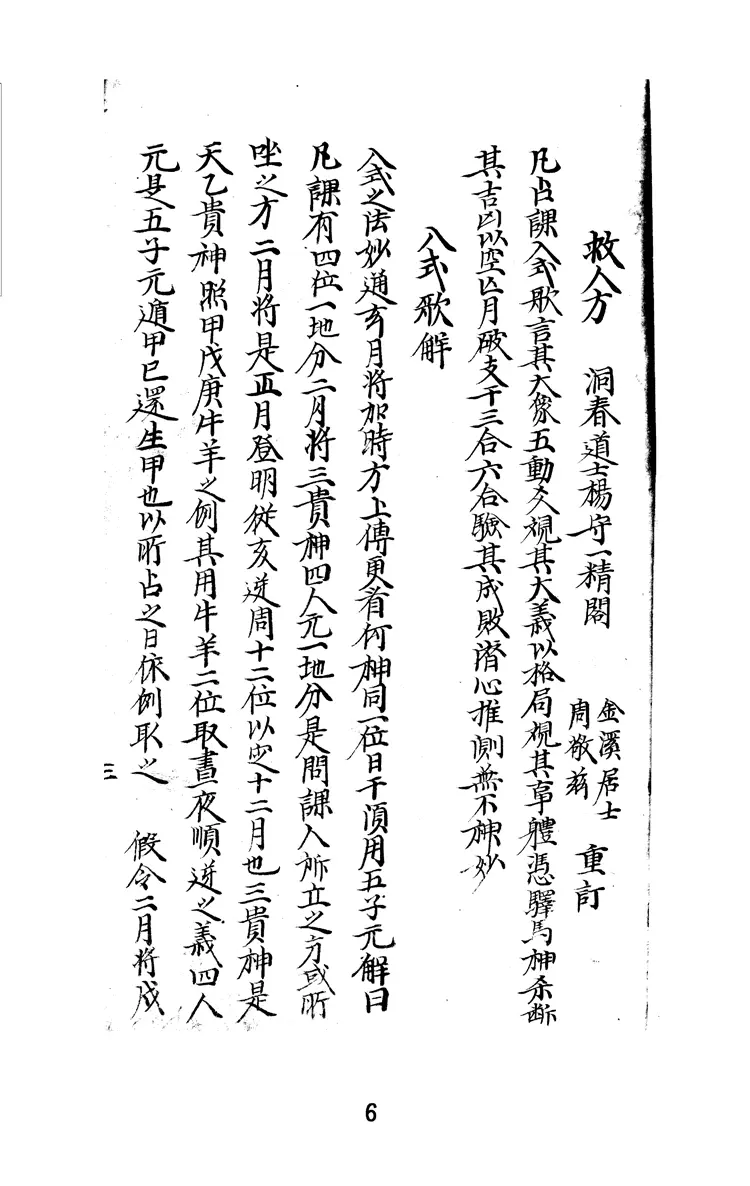 救人方　洞春道士楊守一精閣　金溪居士周敬菴　重訂
凡占課入式歌言其大像五動爻視其大義以格局視其事體憑驛馬神杀断
其吉凶以空亡月破支干三合六合驗其成敗潛心推測無不神妙
入式歌解
入式之法妙通玄月将加時方上傳更看何神同一位日干須用五子元解曰
凡課有四位一地分二月将三貴神四人元一地分是問課人所立之方或所
坐之方二月将是正月登明従亥逆周十二位以定十二月也三貴神是
天乙貴神照甲戊庚牛羊之例其用牛羊二位取晝夜順逆之義四人
元是五子元遁甲己還生甲也以所占之日依例取之　假令二月将戌
三
6